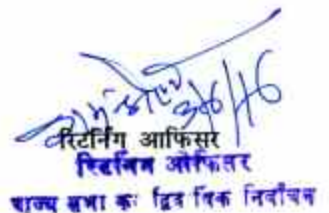 रिटर्निंग आफिसर
रिटर्निंग ऑफिसर
राज्य सभा का द्विवार्षिक निर्वाचन